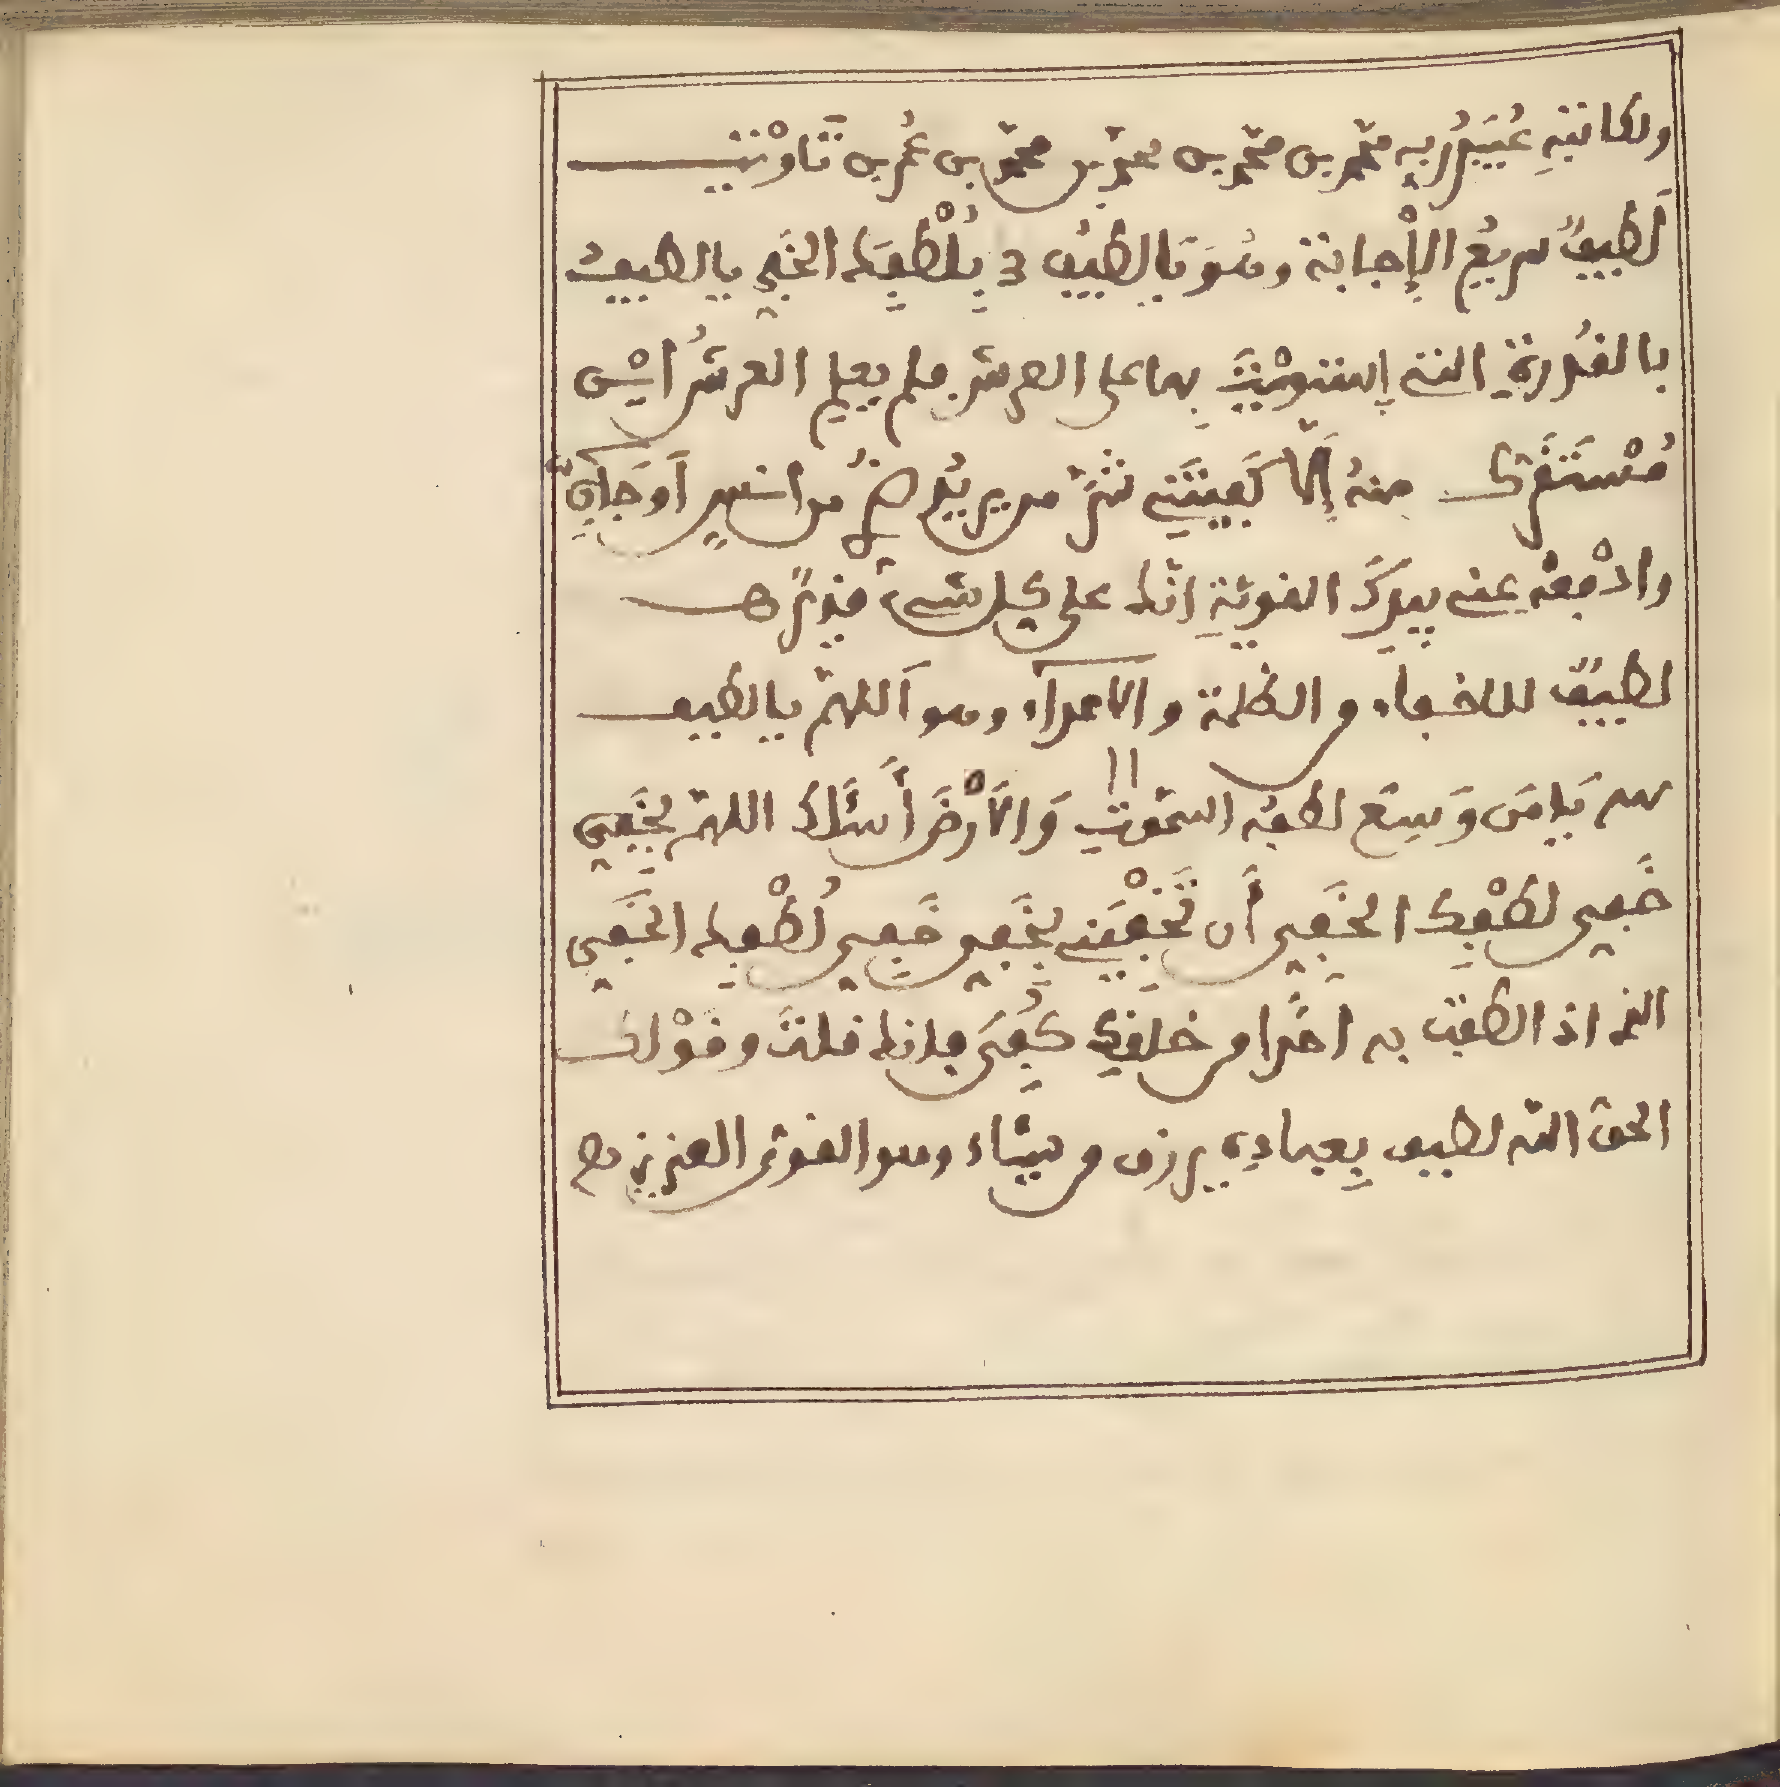 ولكاتبه عُبَيْدُ ربه محمد بن محمد بن محمد بن محمد بن عُمر بن
لَطِيفٌ سريعُ الإْجابة وهُوَ يَا لطيفُ 3 بِلُطْفِكَ الخَفِي يا لطيف
بالقُدرةِ التي إستويْتَ بها على العرش فلم يعلم العرشُ أيْن
مُسْتَقَرُّكَ منهُ إلَّا كَفيتَنِي شَرَّ من يريدُ ضرِّ من انسٍ أوجَانٍّ
وادْفعْه عني بيدِكَ القويّةِ انّك على كل شيء قديرٌ ه
لطيفٌ للاخفاء من الظلمة والاعداء وهو اَللهمّ يا لطيف
بسم يَا مَن وَسِعَ لطفُه السمٰوٰتِ وَالاَرْضَ أَسْئَلُكَ اللهمّ بخَفِيِ
خَفِي لطفِك الخَفِي أَن تُخْفِيَنِي بخَفِي خَفِي لُطْفِكَ الخَفِي
الذي اذا لطفت به احدًا من خلقِك كُفِيَ فإنك قلتَ وقوْلك
الحق الله لطيف بِعبادِهِ يرزق من يشاء وهو القوي العزيز صح